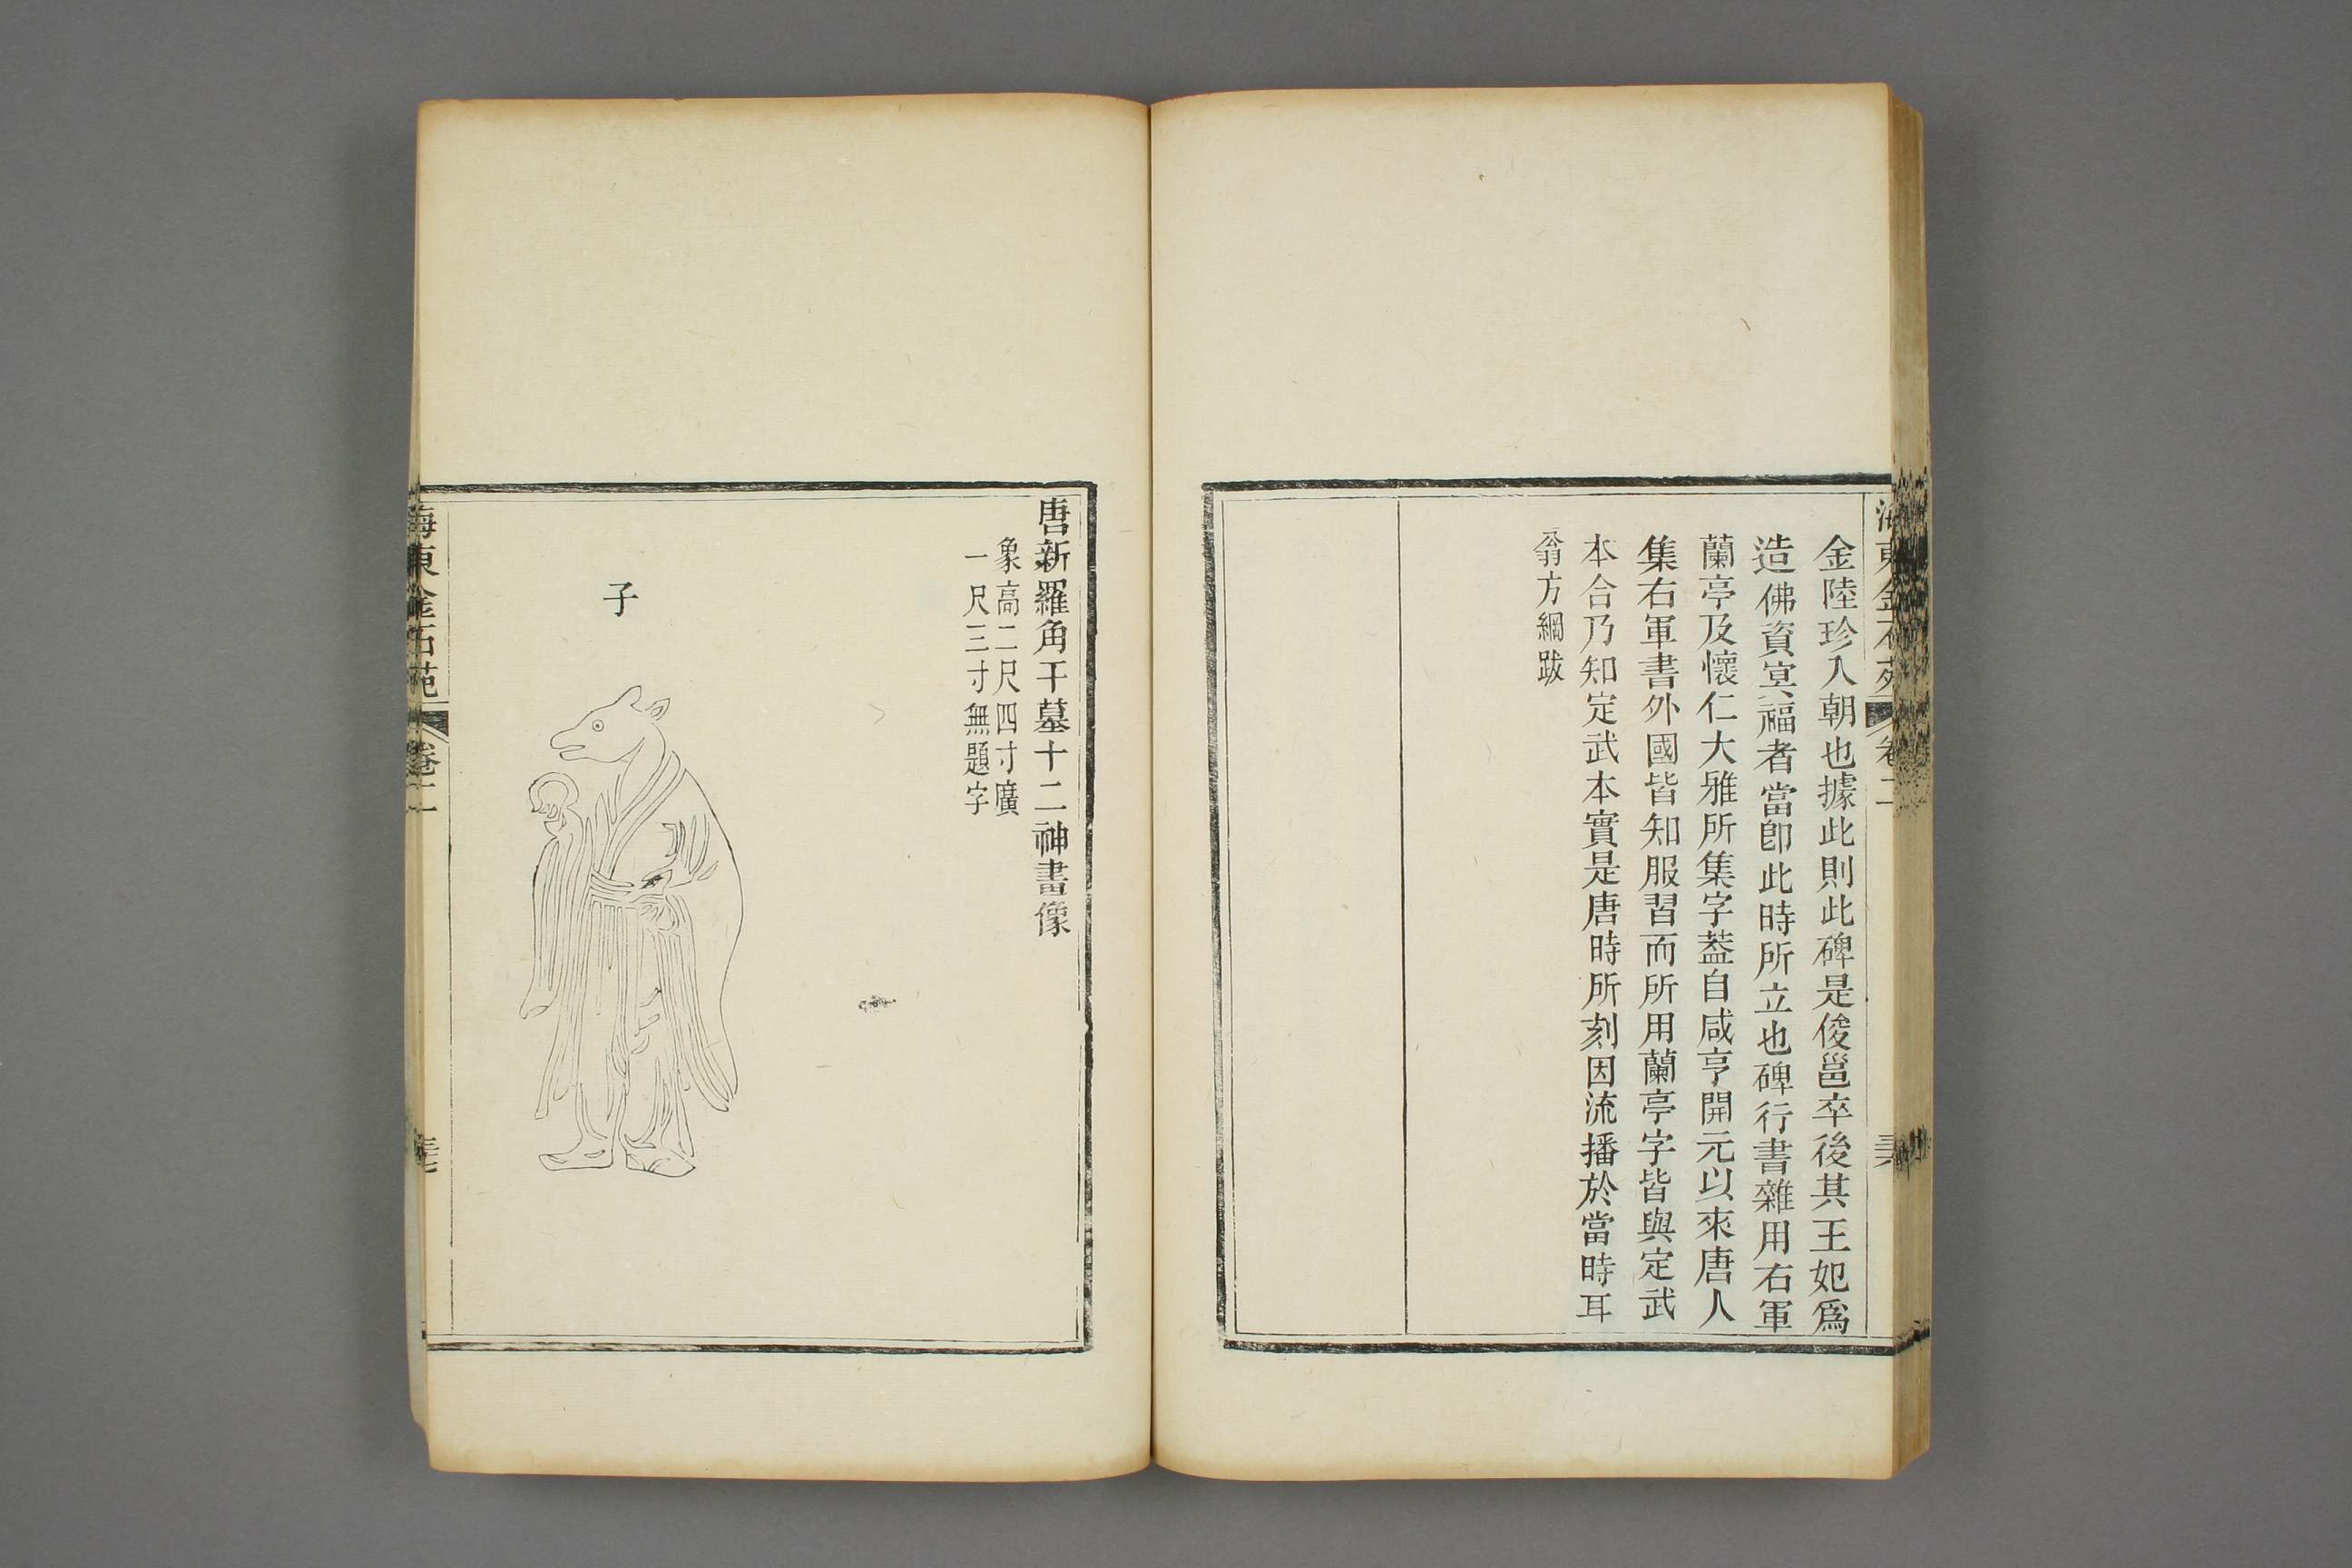 海東金石苑 卷二 三六
金陸珍入朝也據此則此碑是俊邕卒後其王妃爲
造佛資冥福者當卽此時所立也碑行書雜用右軍
蘭亭及懷仁大雅所集字葢自咸亨開元以來唐人
集右軍書外國皆知服習而所用蘭亭字皆與定武
本合乃知定武本實是唐時所刻因流播於當時耳
翁方綱跋
唐新羅角干墓十二神畫像
象高二尺四寸廣
一尺三寸無題字
子
海東金石苑 卷二 三七